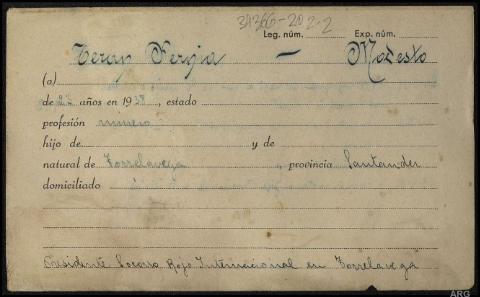 31366-202-2
Leg. núm. Exp. núm.
Teran Pernia — Modesto
(a)
de 22 años en 1938, estado
profesión minero
hijo de y de
natural de Torrelavega, provincia Santander
domiciliado
Presidente Socorro Rojo Internacional en Torrelavega
ARG